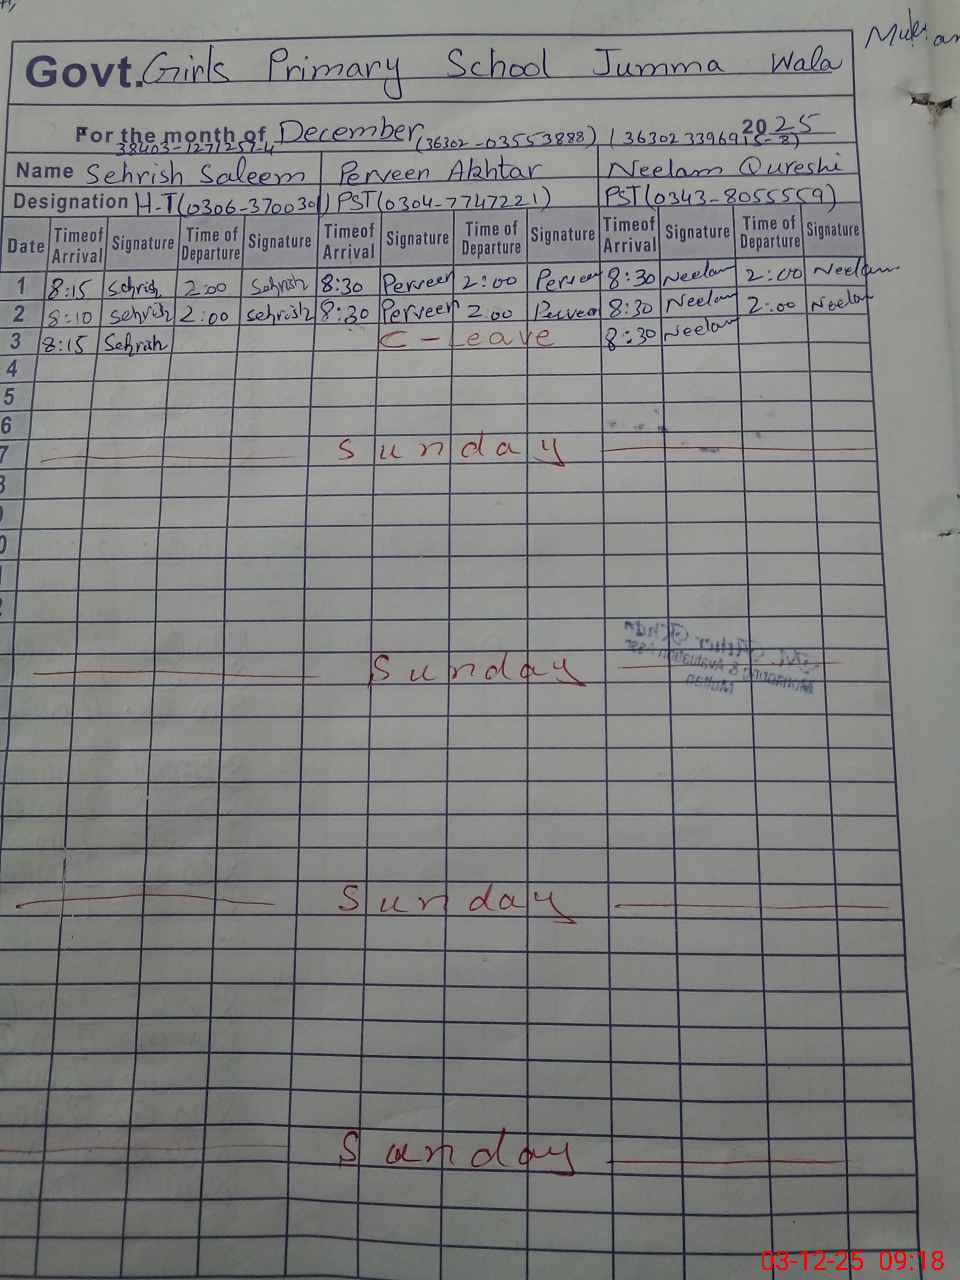 Govt. Girls Primary School Jumma Wala
For the month of December 2025
38403-1271259-4 (36302-03553888) (36302339691 5-8)
Name Sehrish Saleem Perveen Akhtar Neelam Qureshi
Designation H-T(0306-3700301) PST(0304-7747221) PST(0343-8055559)
Date Timeof Arrival Signature Time of Departure Signature Timeof Arrival Signature Time of Departure Signature Timeof Arrival Signature Time of Departure Signature
1 8:15 Sehrish 2:00 Sehrish 8:30 Perveen 2:00 Perveen 8:30 Neelam 2:00 Neelam
2 8:10 Sehrish 2:00 Sehrish 8:30 Perveen 2:00 Perveen 8:30 Neelam 2:00 Neelam
3 8:15 Sehrish C-Leave 8:30 Neelam
4
5
6
7 Sunday
Sunday
Sunday
Sunday
03-12-25 09:18